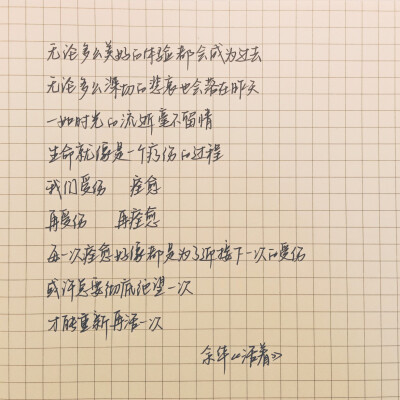 无论多么美好的体验都会成为过去
无论多么深切的悲哀也会落在昨天
一如时光的流逝毫不留情
生命就像是一个疗伤的过程
我们受伤 痊愈
再受伤 再痊愈
每一次痊愈好像都是为了迎接下一次的受伤
或许总要彻底绝望一次
才能重新再活一次
余华《活着》